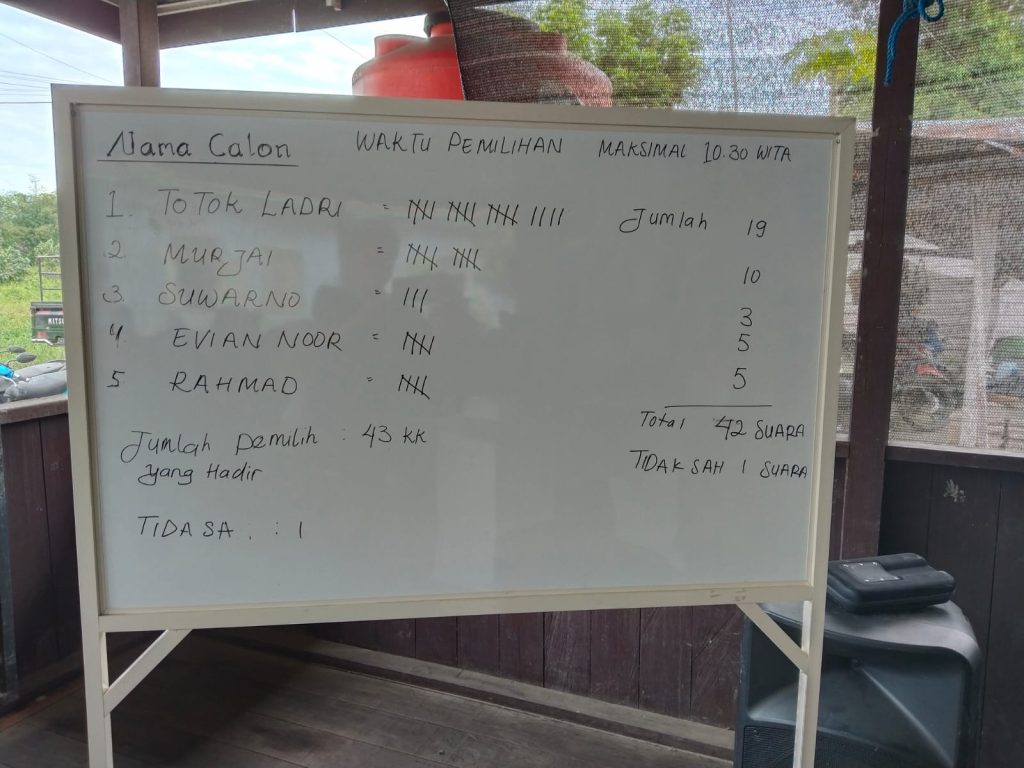 Nama Calon WAKTU PEMILIHAN MAKSIMAL 10.30 WITA
1. TOTOK LADRI = 卌 卌 卌 |||| Jumlah 19
2 MURJAI = 卌 卌 10
3. SUWARNO = ||| 3
4. EVIAN NOOR = 卌 5
5 RAHMAD = 卌 5
Total 42 SUARA
Jumlah pemilih : 43 KK
yang Hadir
TIDAK SAH 1 SUARA
TIDA SA . : 1